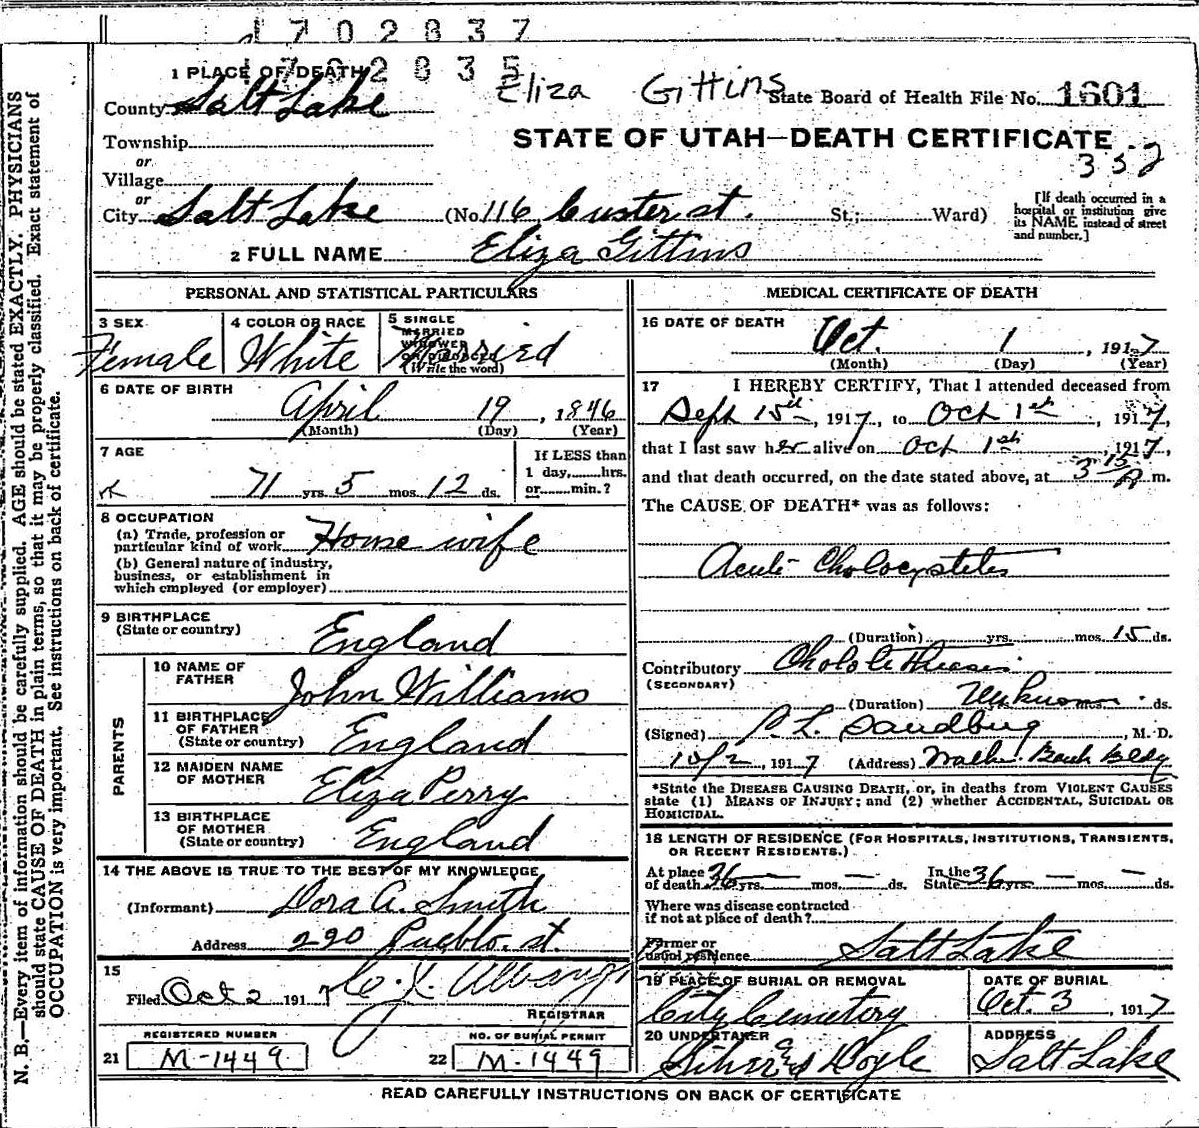 1702837
1702835
1 PLACE OF DEATH
Eliza Gittins
State Board of Health File No. 1601
County Salt Lake
STATE OF UTAH—DEATH CERTIFICATE
352
Township
or
Village
or
City Salt Lake (No. 116 Custer st. St.; Ward)
[If death occurred in a
hospital or institution give
its NAME instead of street
and number.]
2 FULL NAME Eliza Gittins
PERSONAL AND STATISTICAL PARTICULARS
3 SEX
Female
4 COLOR OR RACE
White
5 SINGLE
MARRIED
WIDOWED
OR DIVORCED
(Write the word)
Married
6 DATE OF BIRTH
April 19, 1846
(Month) (Day) (Year)
7 AGE
71 yrs 5 mos. 12 ds.
If LESS than
1 day,......hrs.
or......min.?
8 OCCUPATION
(a) Trade, profession or
particular kind of work House wife
(b) General nature of industry,
business, or establishment in
which employed (or employer)
9 BIRTHPLACE
(State or country) England
PARENTS
10 NAME OF
FATHER John Williams
11 BIRTHPLACE
OF FATHER
(State or country) England
12 MAIDEN NAME
OF MOTHER Eliza Perry
13 BIRTHPLACE
OF MOTHER
(State or country) England
14 THE ABOVE IS TRUE TO THE BEST OF MY KNOWLEDGE
(Informant) Dora A. Smith
Address 290 Pueblo. st.
15
Filed Oct 2 1917 C. J. Albaugh
REGISTRAR
REGISTERED NUMBER
21 M-1449
NO. OF BURIAL PERMIT
22 M-1449
MEDICAL CERTIFICATE OF DEATH
16 DATE OF DEATH
Oct. 1, 1917
(Month) (Day) (Year)
17 I HEREBY CERTIFY, That I attended deceased from
Sept 15th, 1917, to Oct 1st, 1917,
that I last saw her alive on Oct 1st, 1917,
and that death occurred, on the date stated above, at 3 15 A m.
The CAUSE OF DEATH* was as follows:
Acute Cholocystetes
(Duration) yrs. mos. 15 ds.
Contributory
(SECONDARY)
(Duration) Unknown ds.
(Signed) P. L. Sandburg, M. D.
10/2, 1917 (Address) Walker Bank Bldg
*State the DISEASE CAUSING DEATH, or, in deaths from VIOLENT CAUSES
state (1) MEANS OF INJURY; and (2) whether ACCIDENTAL, SUICIDAL OR
HOMICIDAL.
18 LENGTH OF RESIDENCE (FOR HOSPITALS, INSTITUTIONS, TRANSIENTS,
OR RECENT RESIDENTS.)
At place
of death 36 yrs. — mos. — ds.
In the
State 36 yrs. — mos. — ds.
Where was disease contracted
if not at place of death?
Former or
usual residence Salt Lake
19 PLACE OF BURIAL OR REMOVAL
City Cemetery
DATE OF BURIAL
Oct. 3, 1917
20 UNDERTAKER
Doyle
ADDRESS
Salt Lake
READ CAREFULLY INSTRUCTIONS ON BACK OF CERTIFICATE
N. B.—Every item of information should be carefully supplied. AGE should be stated EXACTLY. PHYSICIANS
should state CAUSE OF DEATH in plain terms, so that it may be properly classified. Exact statement of
OCCUPATION is very important. See instructions on back of certificate.